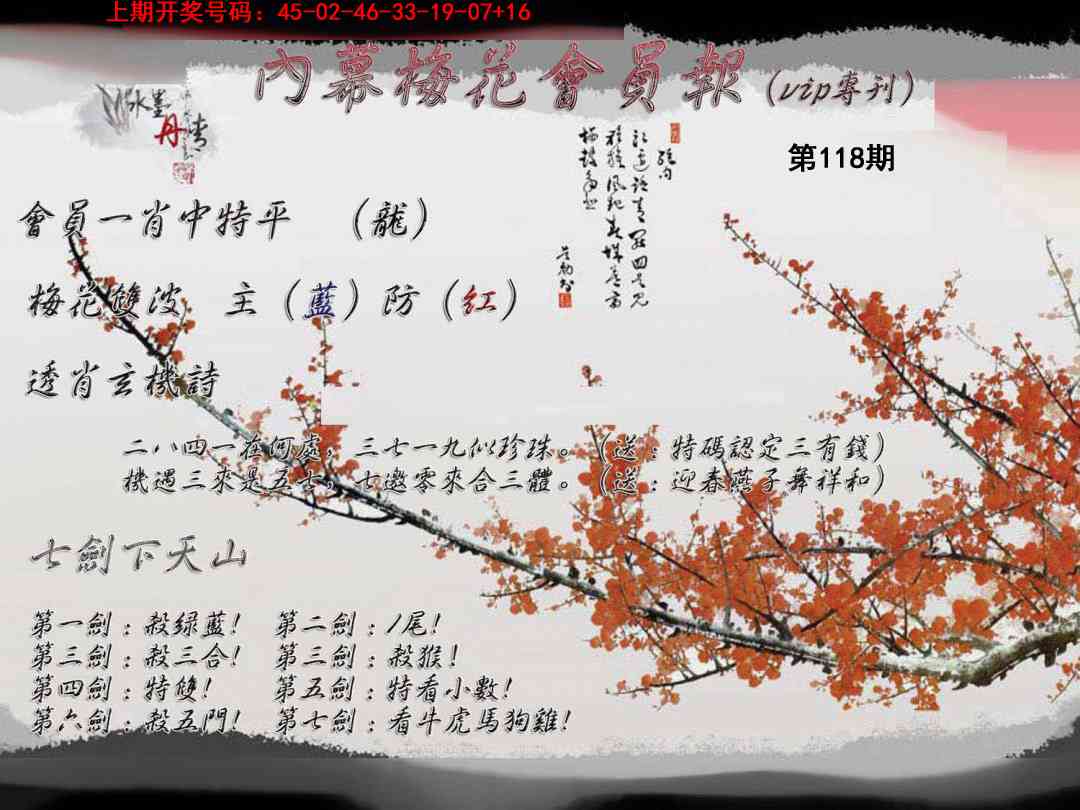 上期开奖号码：45-02-46-33-19-07+16
內幕梅花會員報（vip專刊）
水墨
丹青
第118期
會員一肖中特平 （龍）
梅花雙波 主（藍）防（紅）
透肖玄機詩
二八四一在何處，三七一九似珍珠。（送：特碼認定三有錢）
機遇三來是五七，七邀零來合三體。（送：迎春燕子舞祥和）
七劍下天山
第一劍：殺綠藍！ 第二劍：1尾！
第三劍：殺三合！ 第三劍：殺猴！
第四劍：特雙！ 第五劍：特看小數！
第六劍：殺五門！ 第七劍：看牛虎馬狗雞！